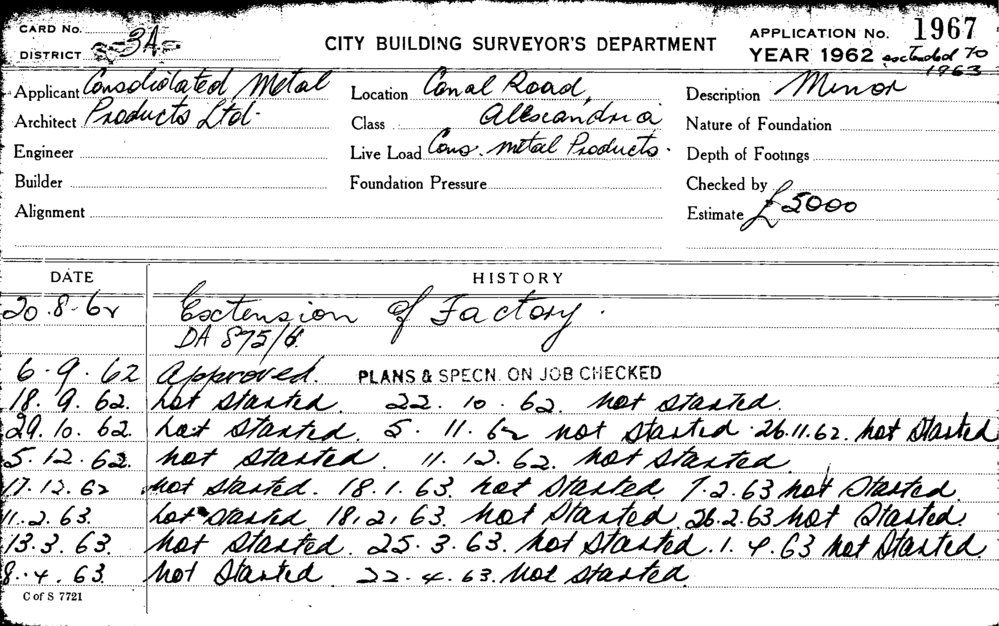 CARD No.
DISTRICT 3A
CITY BUILDING SURVEYOR'S DEPARTMENT
APPLICATION No. 1967
YEAR 1962 extended to 1963
Applicant Consolidated Metal
Architect Products Ltd.
Engineer
Builder
Alignment
Location Canal Road,
Class Allexandria
Live Load Cons. Metal Products.
Foundation Pressure
Description Minor
Nature of Foundation
Depth of Footings
Checked by
Estimate £5000
DATE HISTORY
20.8.62 Extension of Factory.
DA 875/6
6.9.62 Approved. PLANS & SPECN. ON JOB CHECKED
18.9.62. Not Started. 22.10.62. Not Started.
29.10.62. Not Started. 5.11.62 not Started. 26.11.62. Not Started
5.12.62. Not Started. 11.12.62. Not Started.
17.12.62 Not Started. 18.1.63. Not Started 7.2.63 not Started.
11.2.63. Not Started 18.2.63. Not Started. 26.2.63 Not Started.
13.3.63. Not Started. 25.3.63. Not Started. 1.4.63 Not Started
8.4.63. Not Started 22.4.63. Not Started.
C of S 7721